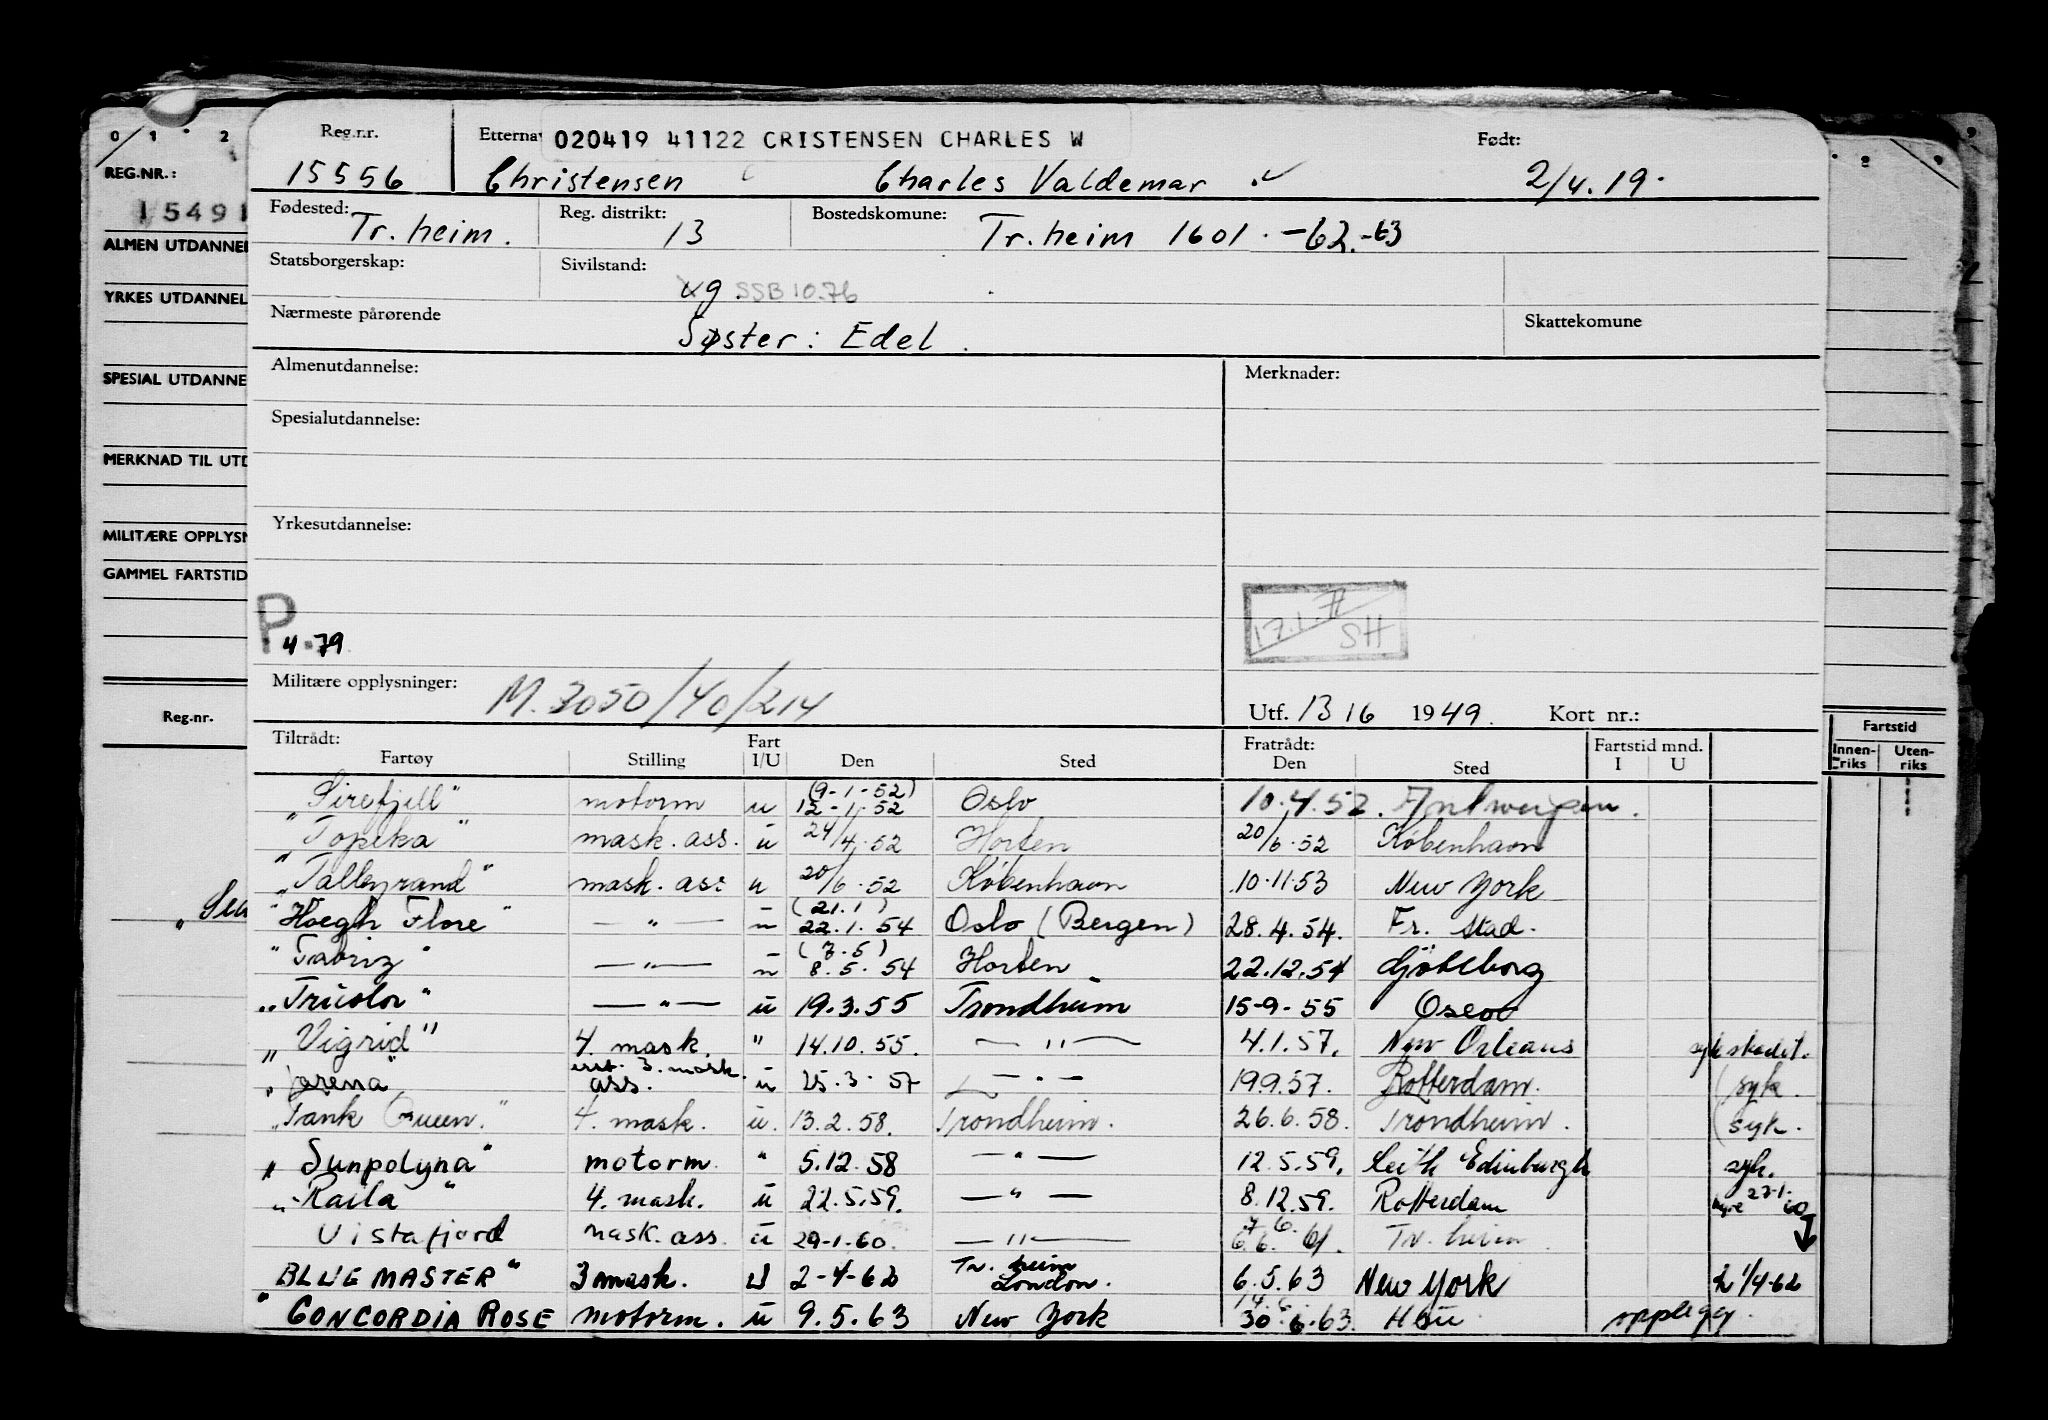 0 1 2
REG.NR.:
1549
ALMEN UTDANNEL
YRKES UTDANNEL
SPESIAL UTDANNE
MERKNAD TIL UTD
MILITÆRE OPPLYSN
GAMMEL FARTSTID
Reg.nr.
Reg.nr. Etternav 020419 41122 CRISTENSEN CHARLES W Født:
15556 Christensen Charles Valdemar 2/4.19.
Fødested: Tr.heim. Reg. distrikt: 13 Bostedskomune: Tr.heim 1601.-62.-63
Statsborgerskap: Sivilstand: ug SSB 10.76
Nærmeste pårørende Søster: Edel. Skattekomune
Almenutdannelse: Merknader:
Spesialutdannelse:
Yrkesutdannelse:
P 4.79
17.1.72 SH
Militære opplysninger: M.3050/40/214
Utf. 13/6 1949. Kort nr.:
Tiltrådt: Fartøy Stilling Fart I/U Den Sted Fratrådt: Den Sted Fartstid mnd. I U
"Sirefjell" motorm u (9-1-52) 12-1-52 Oslo 10.4.52. Antwerpen.
"Topeka" mask.ass. u 24/4.52 Horten 20/6.52 København
"Talleyrand" mask.ass u 20/6.52 København 10.11.53 New York
"Høegh Flore" —"— u (21.1) 22.1.54 Oslo (Bergen) 28.4.54. Fr.stad.
"Tabriz" —"— u (7.5) 8.5.54 Horten 22.12.54 Gøteborg
"Tricolor" —"— u 19.3.55 Trondheim 15-9-55 Oslo
"Vigrid" 4. mask. " 14.10.55. —"— 4.1.57. New Orleans syk skadet.
erst. 3. mask.
ass. u 25.3.57 —"— 19.9.57. Rotterdam. (syk.
"Tank Queen." 4. mask. u. 13.2.58. Trondheim. 26.6.58. Trondheim. (syk.
"Sunpolyna" motorm. " 5.12.58 —"— 12.5.59. Leith Edinburgh syk.
"Raila" 4. mask. u 22.5.59. —"— 8.12.59. Rotterdam hyre 23.1.60
Vistafjord mask.ass. u 29-1-60. —"— 6.6.61. Tr.heim
BLUE MASTER" 3 mask. U 2-4-62 Tr.heim London. 6.5.63 New York 1/4-62
"CONCORDIA ROSE motorm. u 9.5.63 New York 30.6.63. opplegg.
Fartstid
Innen-riks Uten-riks